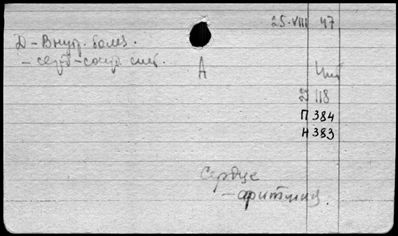 25-VIII 47
Д-Внутр. болез.
-серд-сосуд. сист.
А
Д 118
П 384
Н 383
Сердце
-аритмии.